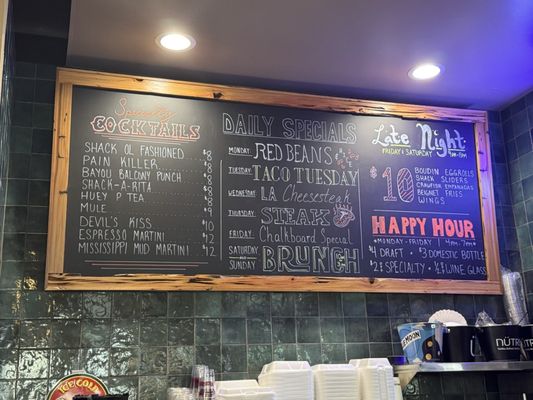 Specialty
COCKTAILS
SHACK OL FASHIONED $8
PAIN KILLER $8
BAYOU BALCONY PUNCH $8
SHACK-A-RITA $8
HUEY P TEA $8
MULE $8
DEVIL'S KISS $10
ESPRESSO MARTINI $12
MISSISSIPPI MUD MARTINI $12
DAILY SPECIALS
MONDAY: RED BEANS
TUESDAY: TACO TUESDAY
WEDNESDAY: LA Cheesesteak
THURSDAY: STEAK
FRIDAY: Chalkboard Special
SATURDAY & SUNDAY BRUNCH
Late Night
FRIDAY & SATURDAY
$10
BOUDIN EGGROLLS
SHACK SLIDERS
CRAWFISH EMPANADAS
BEIGNET FRIES
WINGS
HAPPY HOUR
MONDAY-FRIDAY | 4PM-7PM
$4 DRAFT
$3 DOMESTIC BOTTLE
$2 SPECIALTY
WINE GLASS
MOON
NÜTR
NÜTR
ICE-COLD